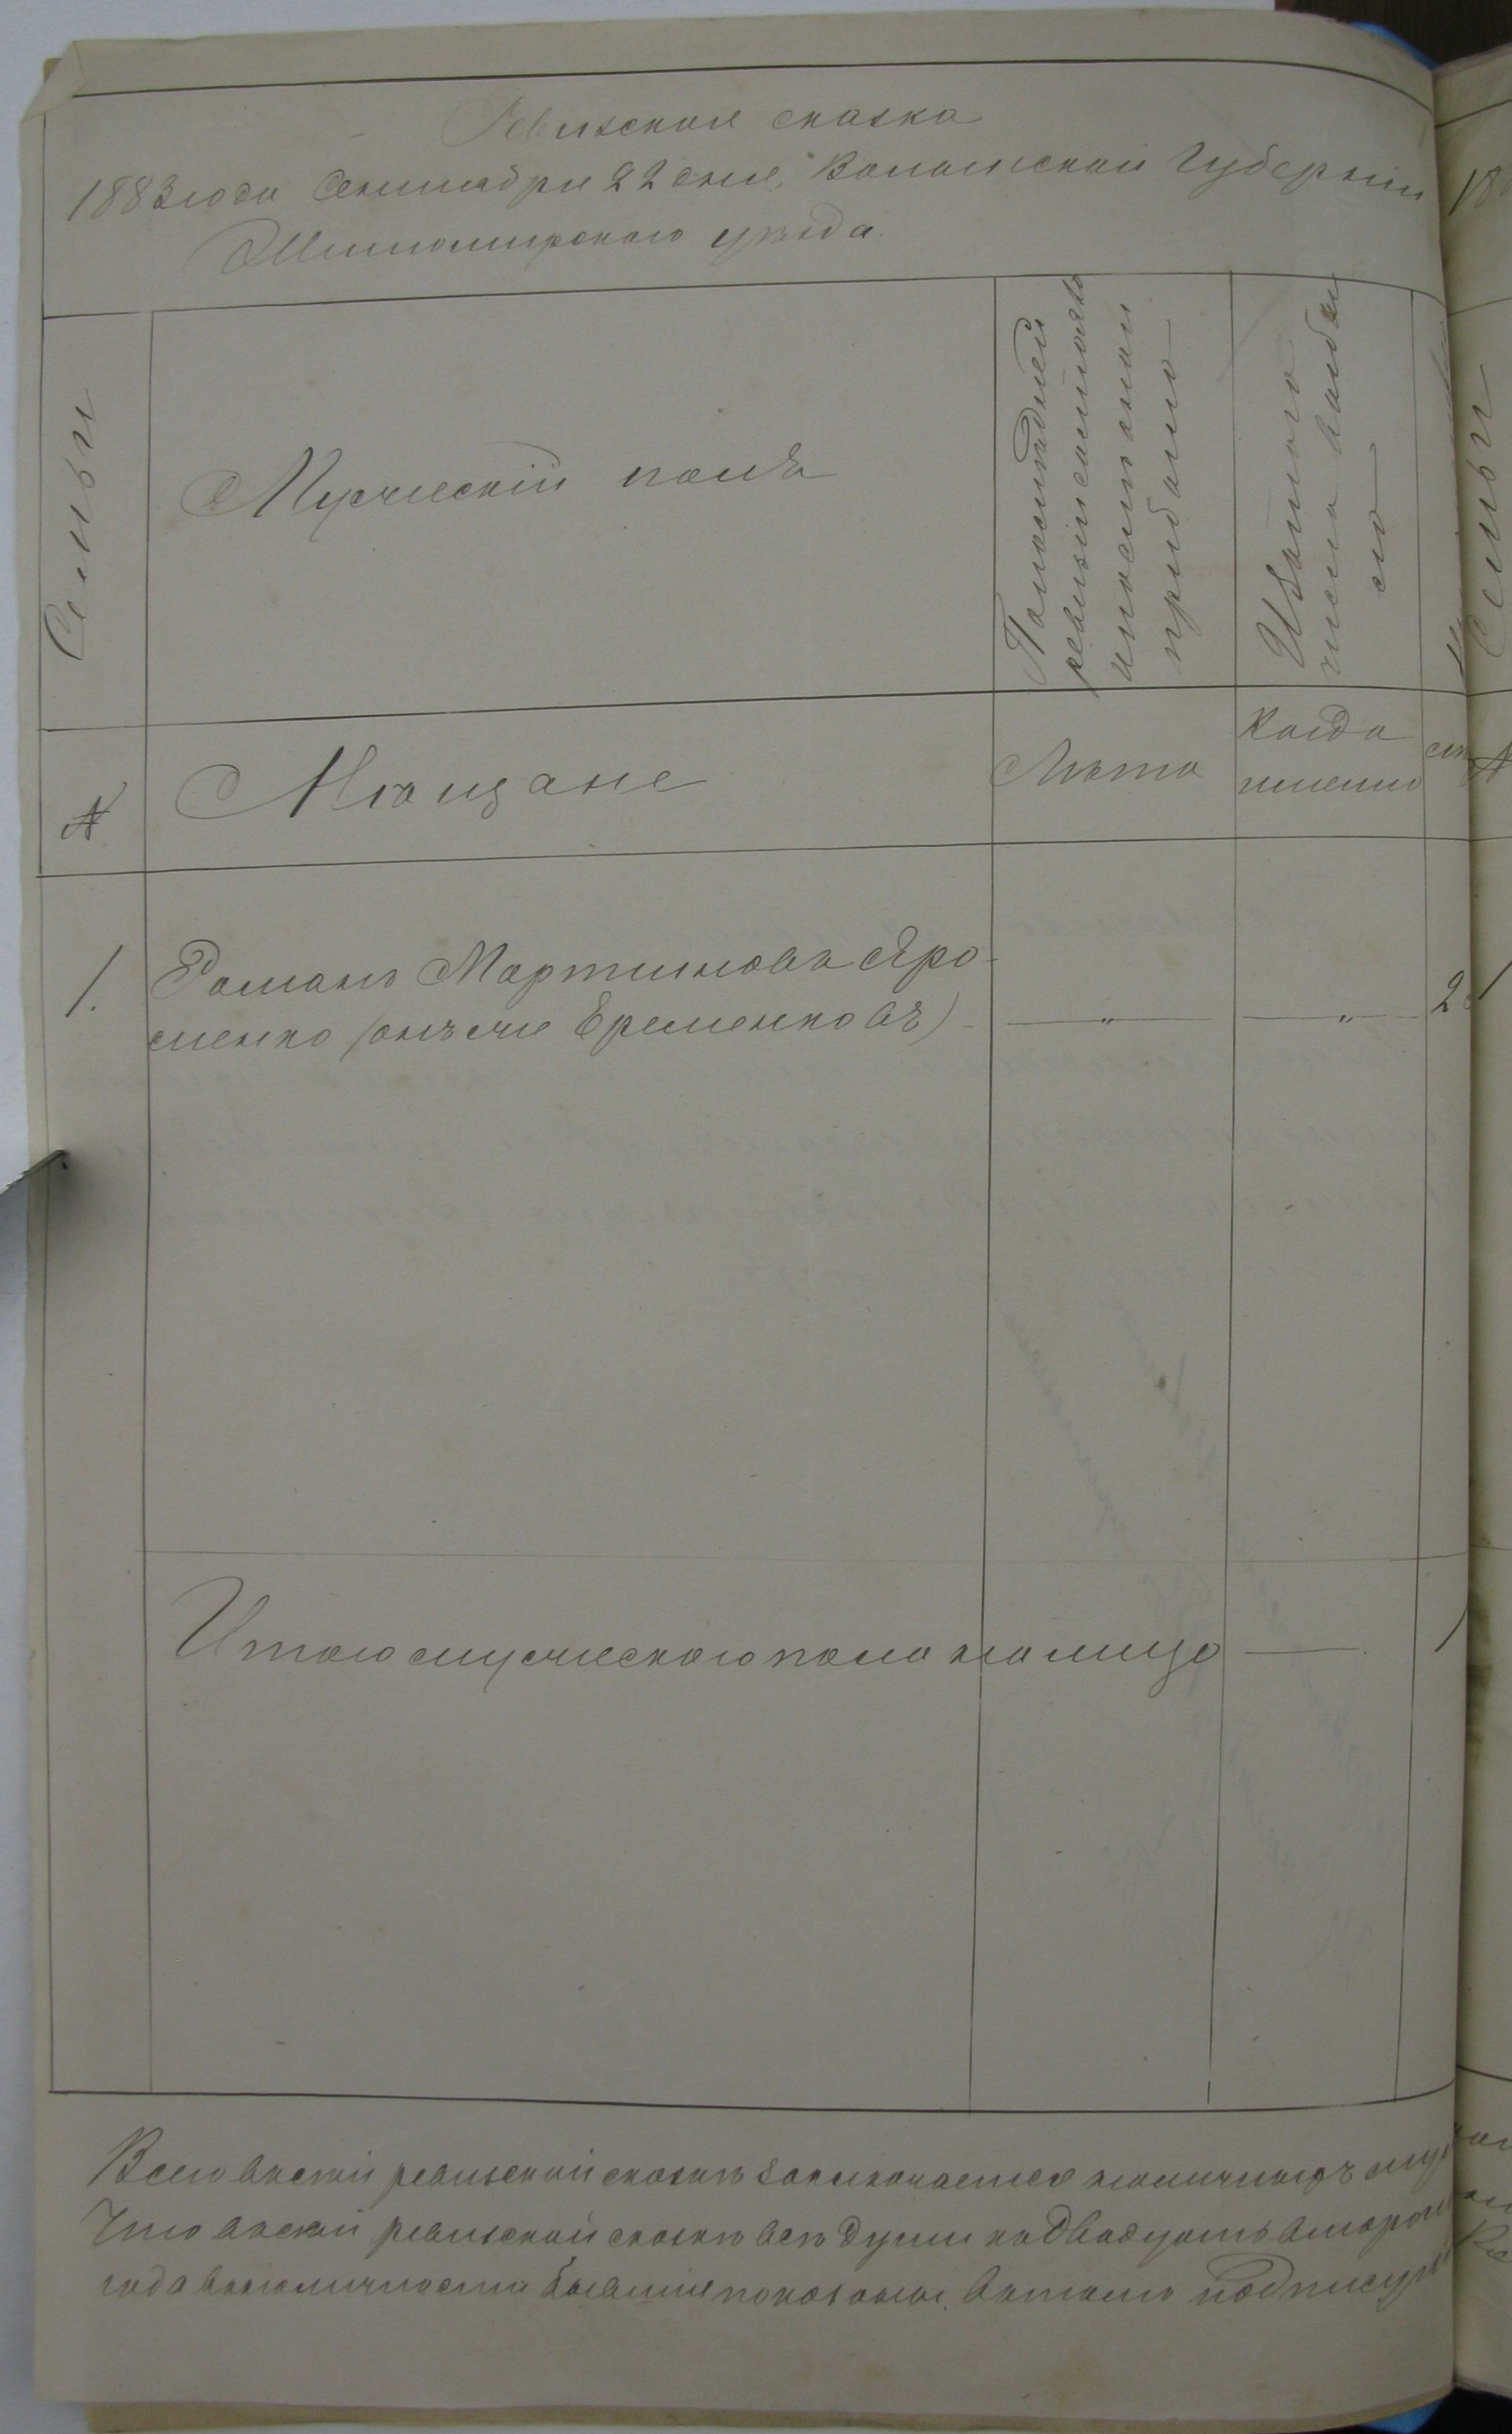 Ревизская сказка
1883 года Сентября 22 дня, Волынской Губернии
Житомирского уѣзда.
Семьи
Мужескій полъ
По последней
ревизіи состояло
и после оной
прибыло
Изъ того
числа выбы
ло
Семьи
№
Мѣщане
Лѣта
Когда
именно
1.
Романъ Мартиновъ Яро-
менко (онъ же Еременковъ)
„
„
2
1
Итого мужескаго пола на лицо
1
Всего въ сей ревизской сказкѣ заключается наличныхъ муж
Что въ сей ревизской сказкѣ всѣ души на двадцать второе
года въ наличности бывшія показаны, въ томъ подписую